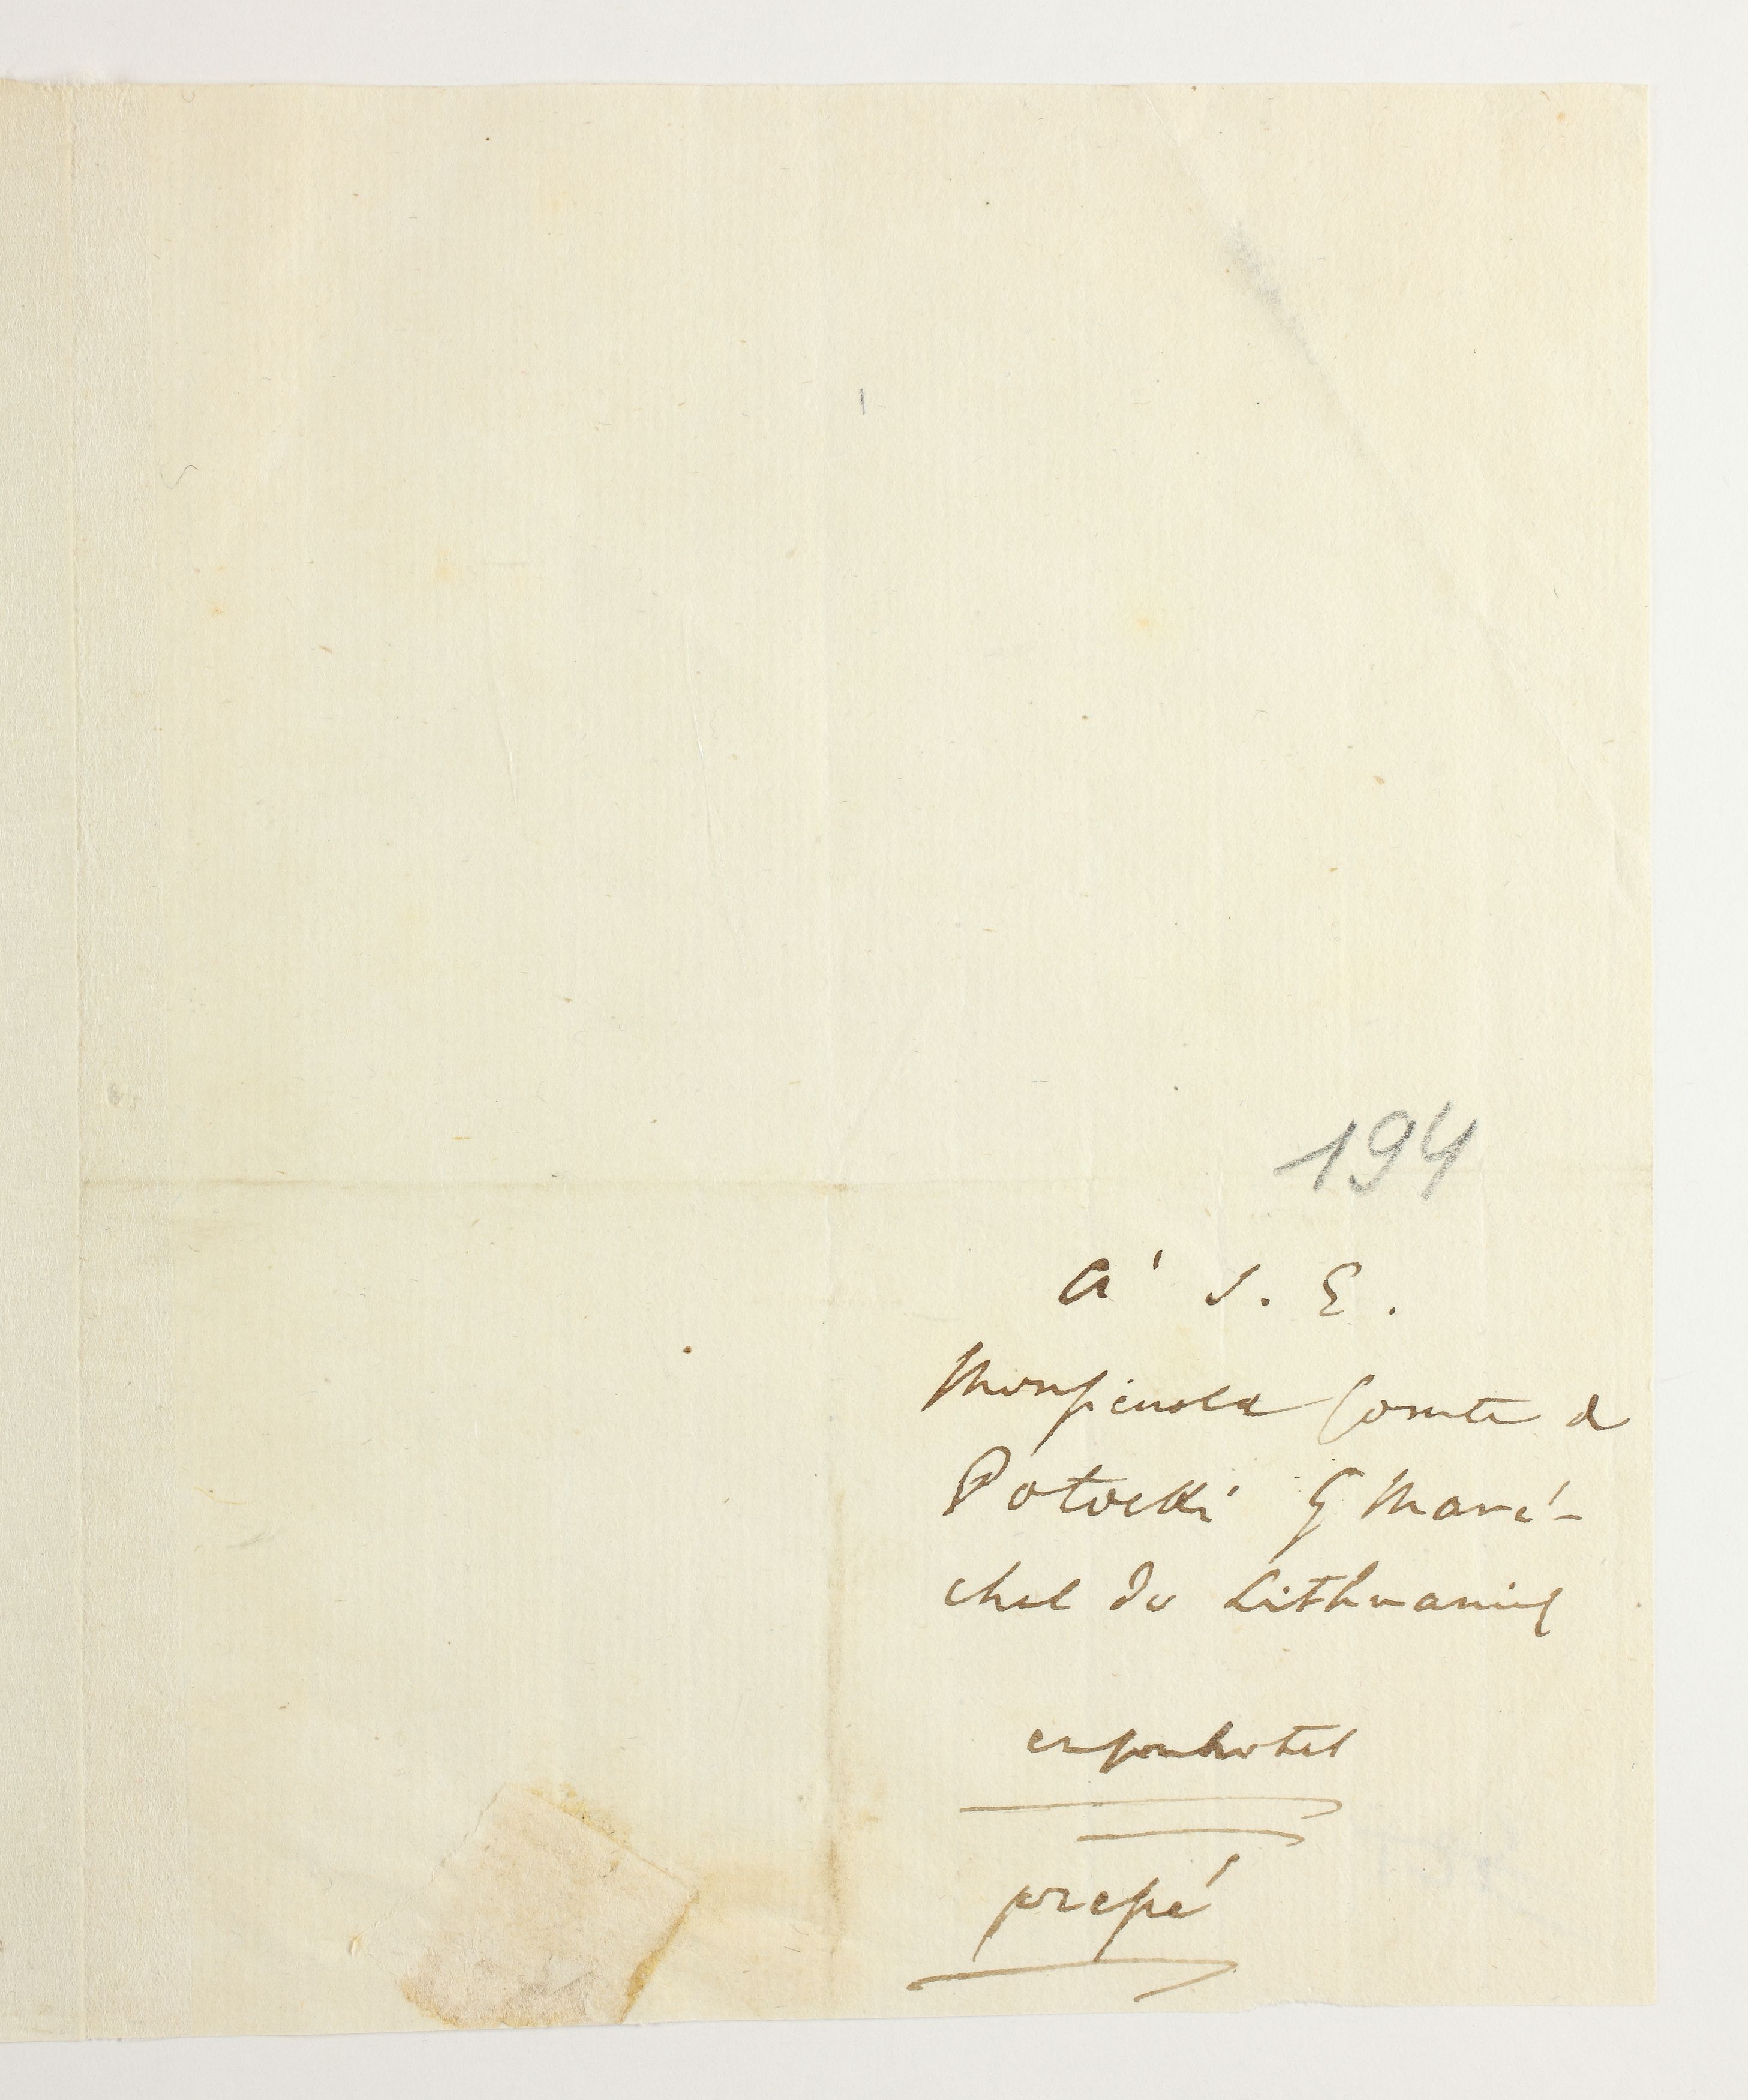 194
a' S. E.
Monsieur le Comte d
Potocki G Maré-
chal de Lithuanie
en son hotel